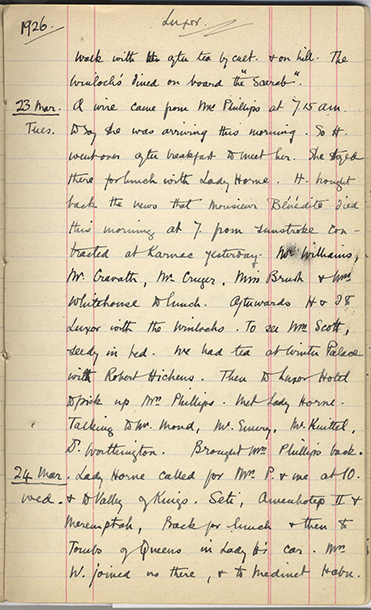 1926. Luxor.
walk with H after tea by cult. & on hill. The
Winlock's dined on board the "Scarab".
23 Mar. A wire came from Mrs Phillips at 7.15 am.
Tues. To say she was arriving this morning. So H
went over after breakfast to meet her. She stayed
there for lunch with Lady Horne. H. brought
back the news that Monsieur Bénédite died
this morning at 7. from sunstroke con-
tracted at Karnac yesterday. Mr Williams,
Mr. Cravath, Mr. Cruger, Miss Brush & Mrs
Whitehouse to lunch. Afterwards H & I to
Luxor with the Winlocks. To see Mrs Scott,
seedy in bed. We had tea at Winter Palace
with Robert Hichens. Then to Luxor Hotel
to pick up Mrs Phillips. Met Lady Horne.
Talking to Mr. Mond, Mr. Emery, Mr. Knittel,
D. Worthington. Brought Mrs Phillips back.
24 Mar. Lady Horne called for Mrs. P. & me at 10.
Wed. & to Valley of Kings. Seti, Amenhotep II &
Merenptah, Back for lunch & then to
Tombs of Queens in Lady H's car. Mrs
W. joined us there, & to Medinet Habu.